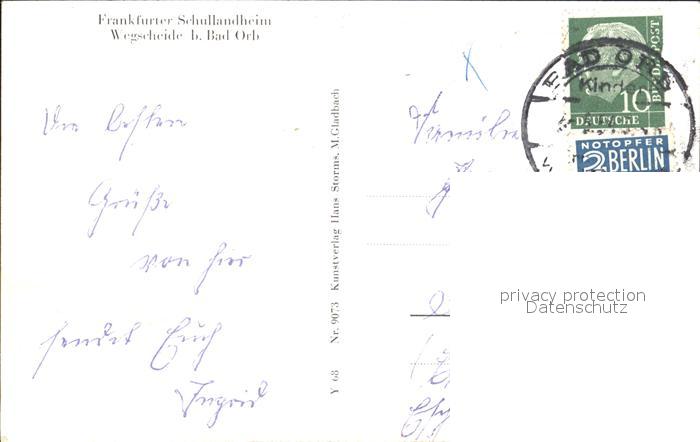 Frankfurter Schullandheim
Wegscheide b. Bad Orb
Die besten
Grüße
von hier
sendet Euch
Ingrid
Y 68 Nr. 9073 Kunstverlag Hans Storms, M.Gladbach
Familie
BAD ORB
Kinder
10
DEUTSCHE
BUNDESPOST
NOTOPFER
2 BERLIN
privacy protection
Datenschutz